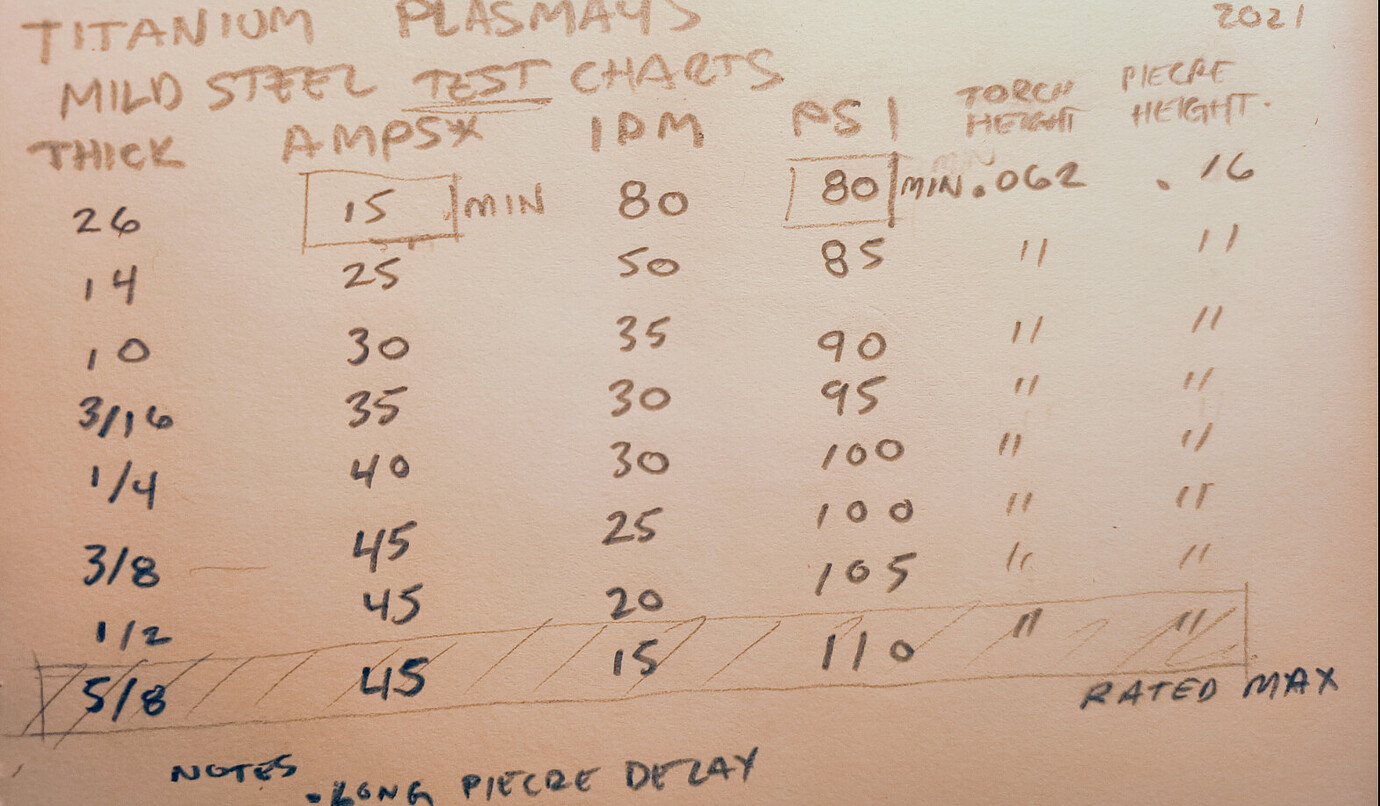 TITANIUM PLASMA45 2021
MILD STEEL TEST CHARTS
THICK AMPS* IPM PSI TORCH HEIGHT PIECRE HEIGHT.
26 15 MIN 80 80 MIN .062 .16
14 25 50 85 " "
10 30 35 90 " "
3/16 35 30 95 " "
1/4 40 30 100 " "
3/8 — 45 25 100 " "
1/2 45 20 105 " "
5/8 45 15 110 " "
RATED MAX
NOTES
• LONG PIECRE DELAY